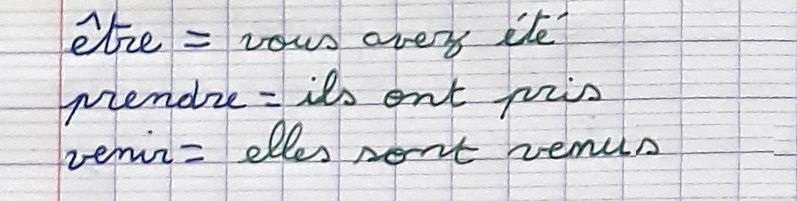 être = vous avez été
prendre = ils ont pris
venir = elles sont venus